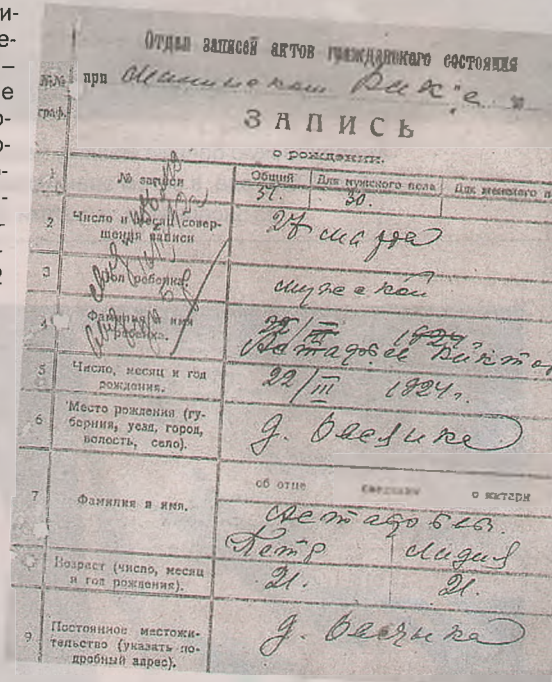 Отдел записей актов гражданского состояния
№№ при
граф.
ЗАПИСЬ
о рождении.
1 № записи Общий Для мужского пола Для женского п
31. 30.
2 Число и месяц совер-
шения записи 27 марта
3 Пол ребенка. мужской
4 Фамилия и имя
ребенка. 22/III 1924. Виктор
5 Число, месяц и год
рождения. 22/III 1924 г.
6 Место рождения (гу-
берния, уезд, город,
волость, село). д.
7 Фамилия и имя. об отце Сведения о матери
Петр Лидия
Возраст (число, месяц
и год рождения). 21. 21.
9 Постоянное местожи-
тельство (указать по-
дробный адрес). д.